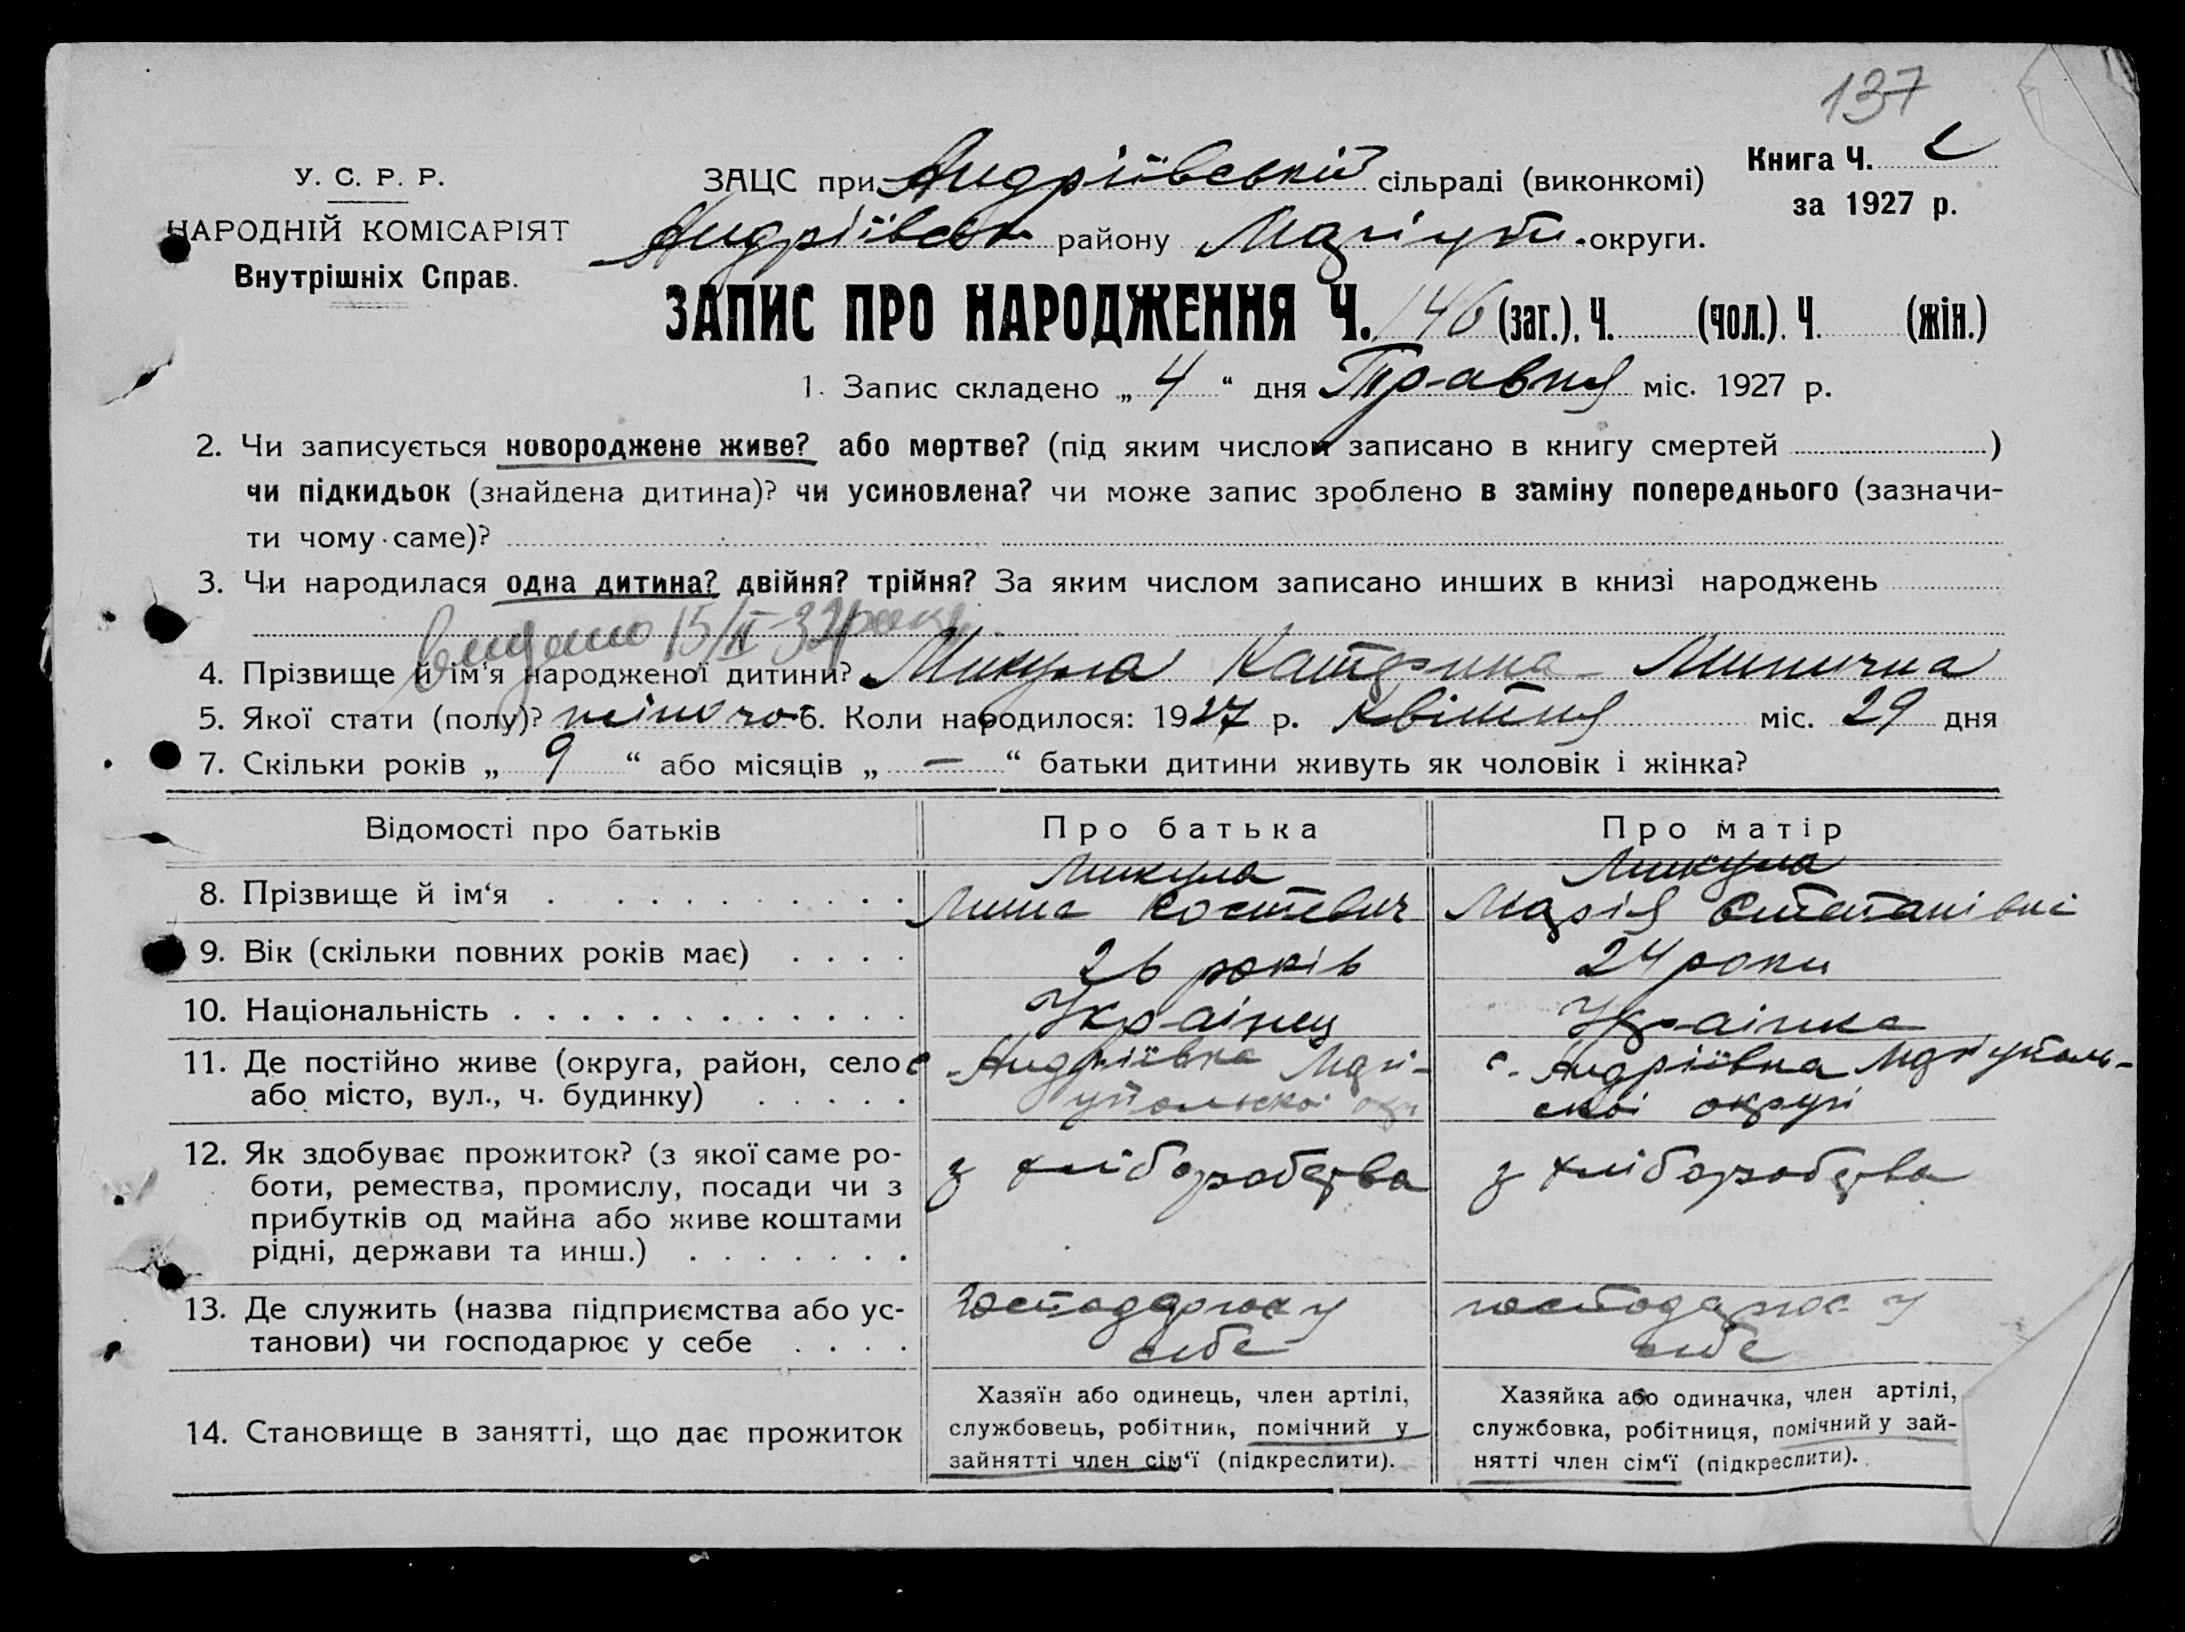 137
У. С. Р. Р.
НАРОДНІЙ КОМІСАРІЯТ
Внутрішніх Справ.
ЗАЦС при Андріївській сільраді (виконкомі)
Книга Ч. 2
за 1927 р.
Андріївськ району Маріуп. округи.
ЗАПИС ПРО НАРОДЖЕННЯ Ч. 146 (заг.), Ч. (чол.). Ч. (жін.)
1. Запис складено „ 4 “ дня Травня міс. 1927 р.
2. Чи записується новороджене живе? або мертве? (під яким числом записано в книгу смертей )
чи підкидьок (знайдена дитина)? чи усиновлена? чи може запис зроблено в заміну попереднього (зазначи-
ти чому саме)?
3. Чи народилася одна дитина? двійня? трійня? За яким числом записано инших в книзі народжень
видано 15/II-32 року
4. Прізвище й ім'я народженої дитини? Микула Катерина
5. Якої статі (полу)? жіночо 6. Коли народилося: 1927 р. Квітня міс. 29 дня
7. Скільки років „ 9 “ або місяців „ — “ батьки дитини живуть як чоловік і жінка?
Відомості про батьків
Про батька
Про матір
8. Прізвище й ім'я
Микула
Костевич
Микула
Марія Степанівна
9. Вік (скільки повних років має)
26 років
24 роки
10. Національність
Українец
Українка
11. Де постійно живе (округа, район, село
або місто, вул., ч. будинку)
с. Андріївка Марі-
упольскоі окр
с. Андріївка Маріуполь-
скоі округи
12. Як здобуває прожиток? (з якої саме ро-
боти, ремества, промислу, посади чи з
прибутків од майна або живе коштами
рідні, держави та инш.)
з хліборобства
з хліборобства
13. Де служить (назва підприємства або ус-
танови) чи господарює у себе
господарює у
себе
господарює у
себе
14. Становище в занятті, що дає прожиток
Хазяїн або одинець, член артілі,
службовець, робітник, помічний у
зайнятті член сім'ї (підкреслити).
Хазяйка або одиначка, член артілі,
службовка, робітниця, помічний у зай-
нятті член сім'ї (підкреслити).